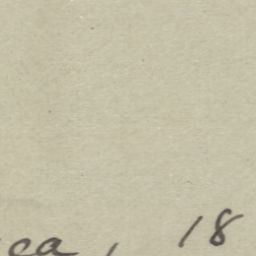 ca, 18